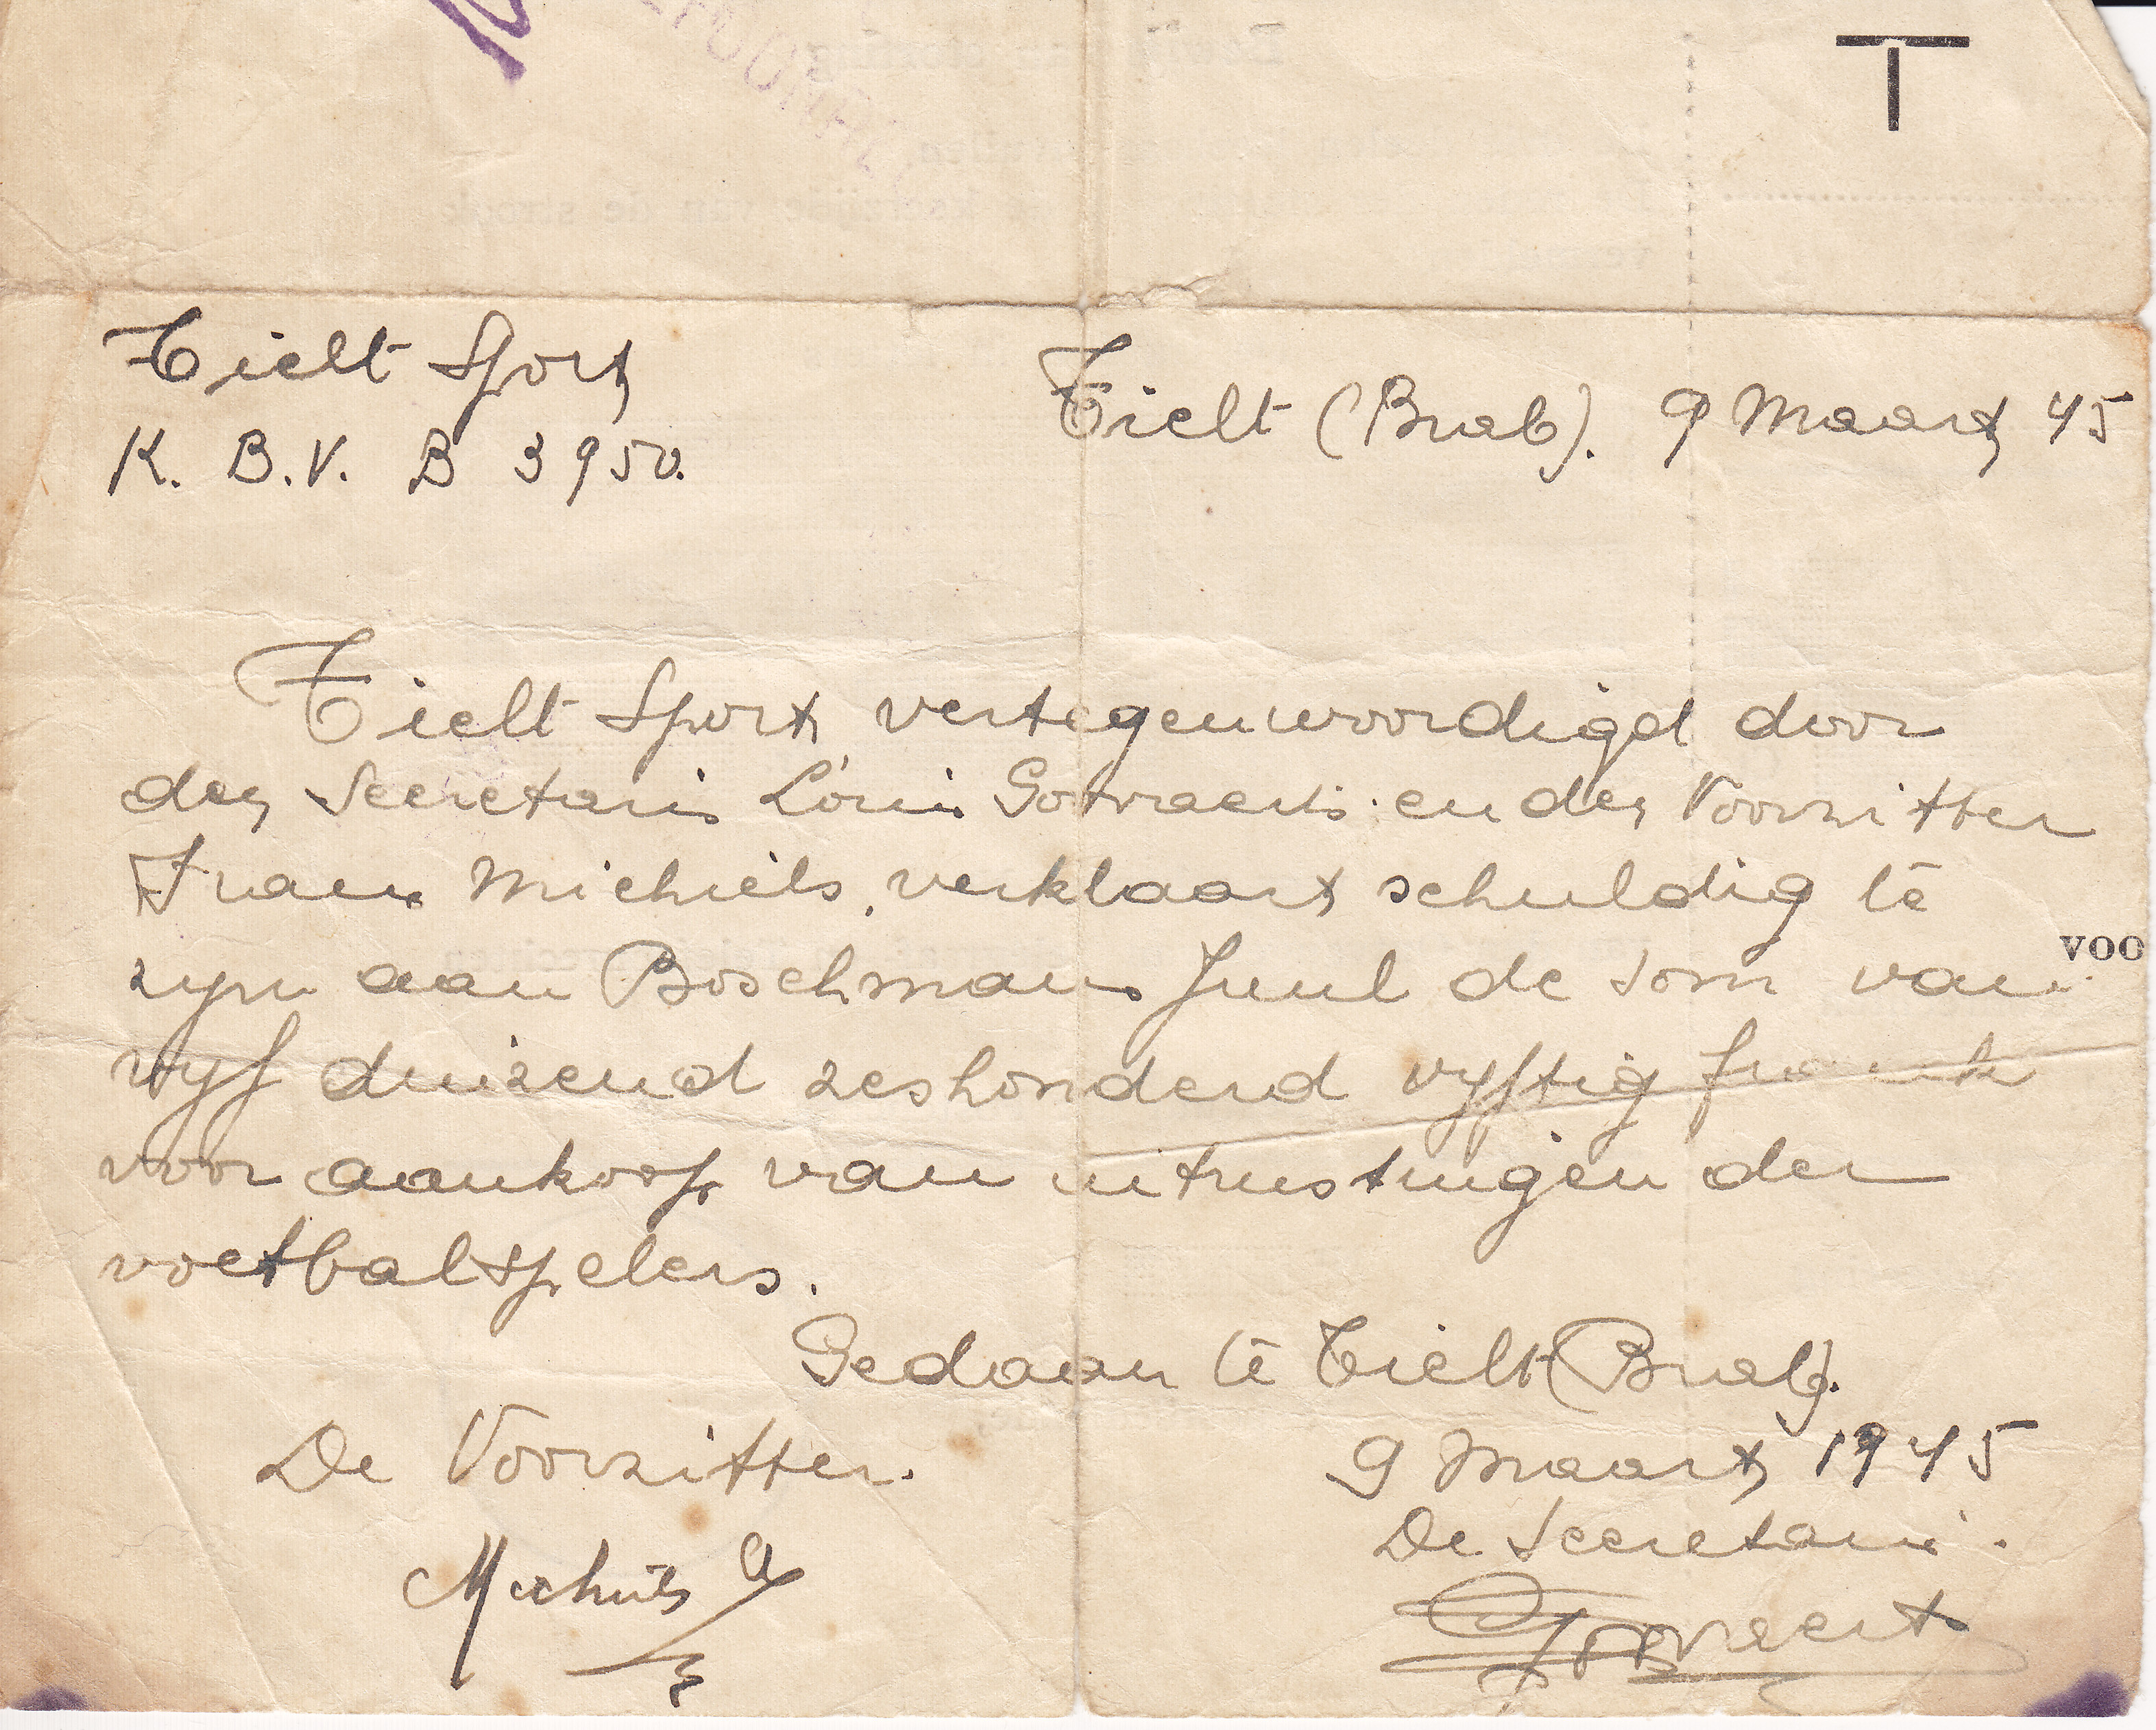 T
Tielt Sport
Tielt (Brab). 9 Maart 45
K. B. V. B 3950.
Tielt Sport vertegenwoordigd door
den Secretaris Louis Govraerts en den Voorzitter
Frans Michiels, verklaart schuldig te
voo
zyn aan Boschmans Juul de som van
vyf duizend zeshonderd vyftig frank
voor aankoop van uitrustingen der
voetbalspelers.
Gedaan te Tielt (Brab).
De Voorzitter.
9 Maart 1945
De Secretaris.
Michiels